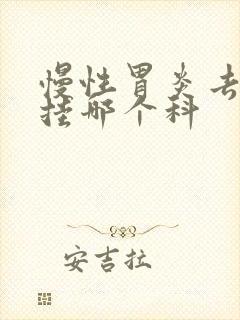 慢性胃炎去
挂哪个科
安吉拉